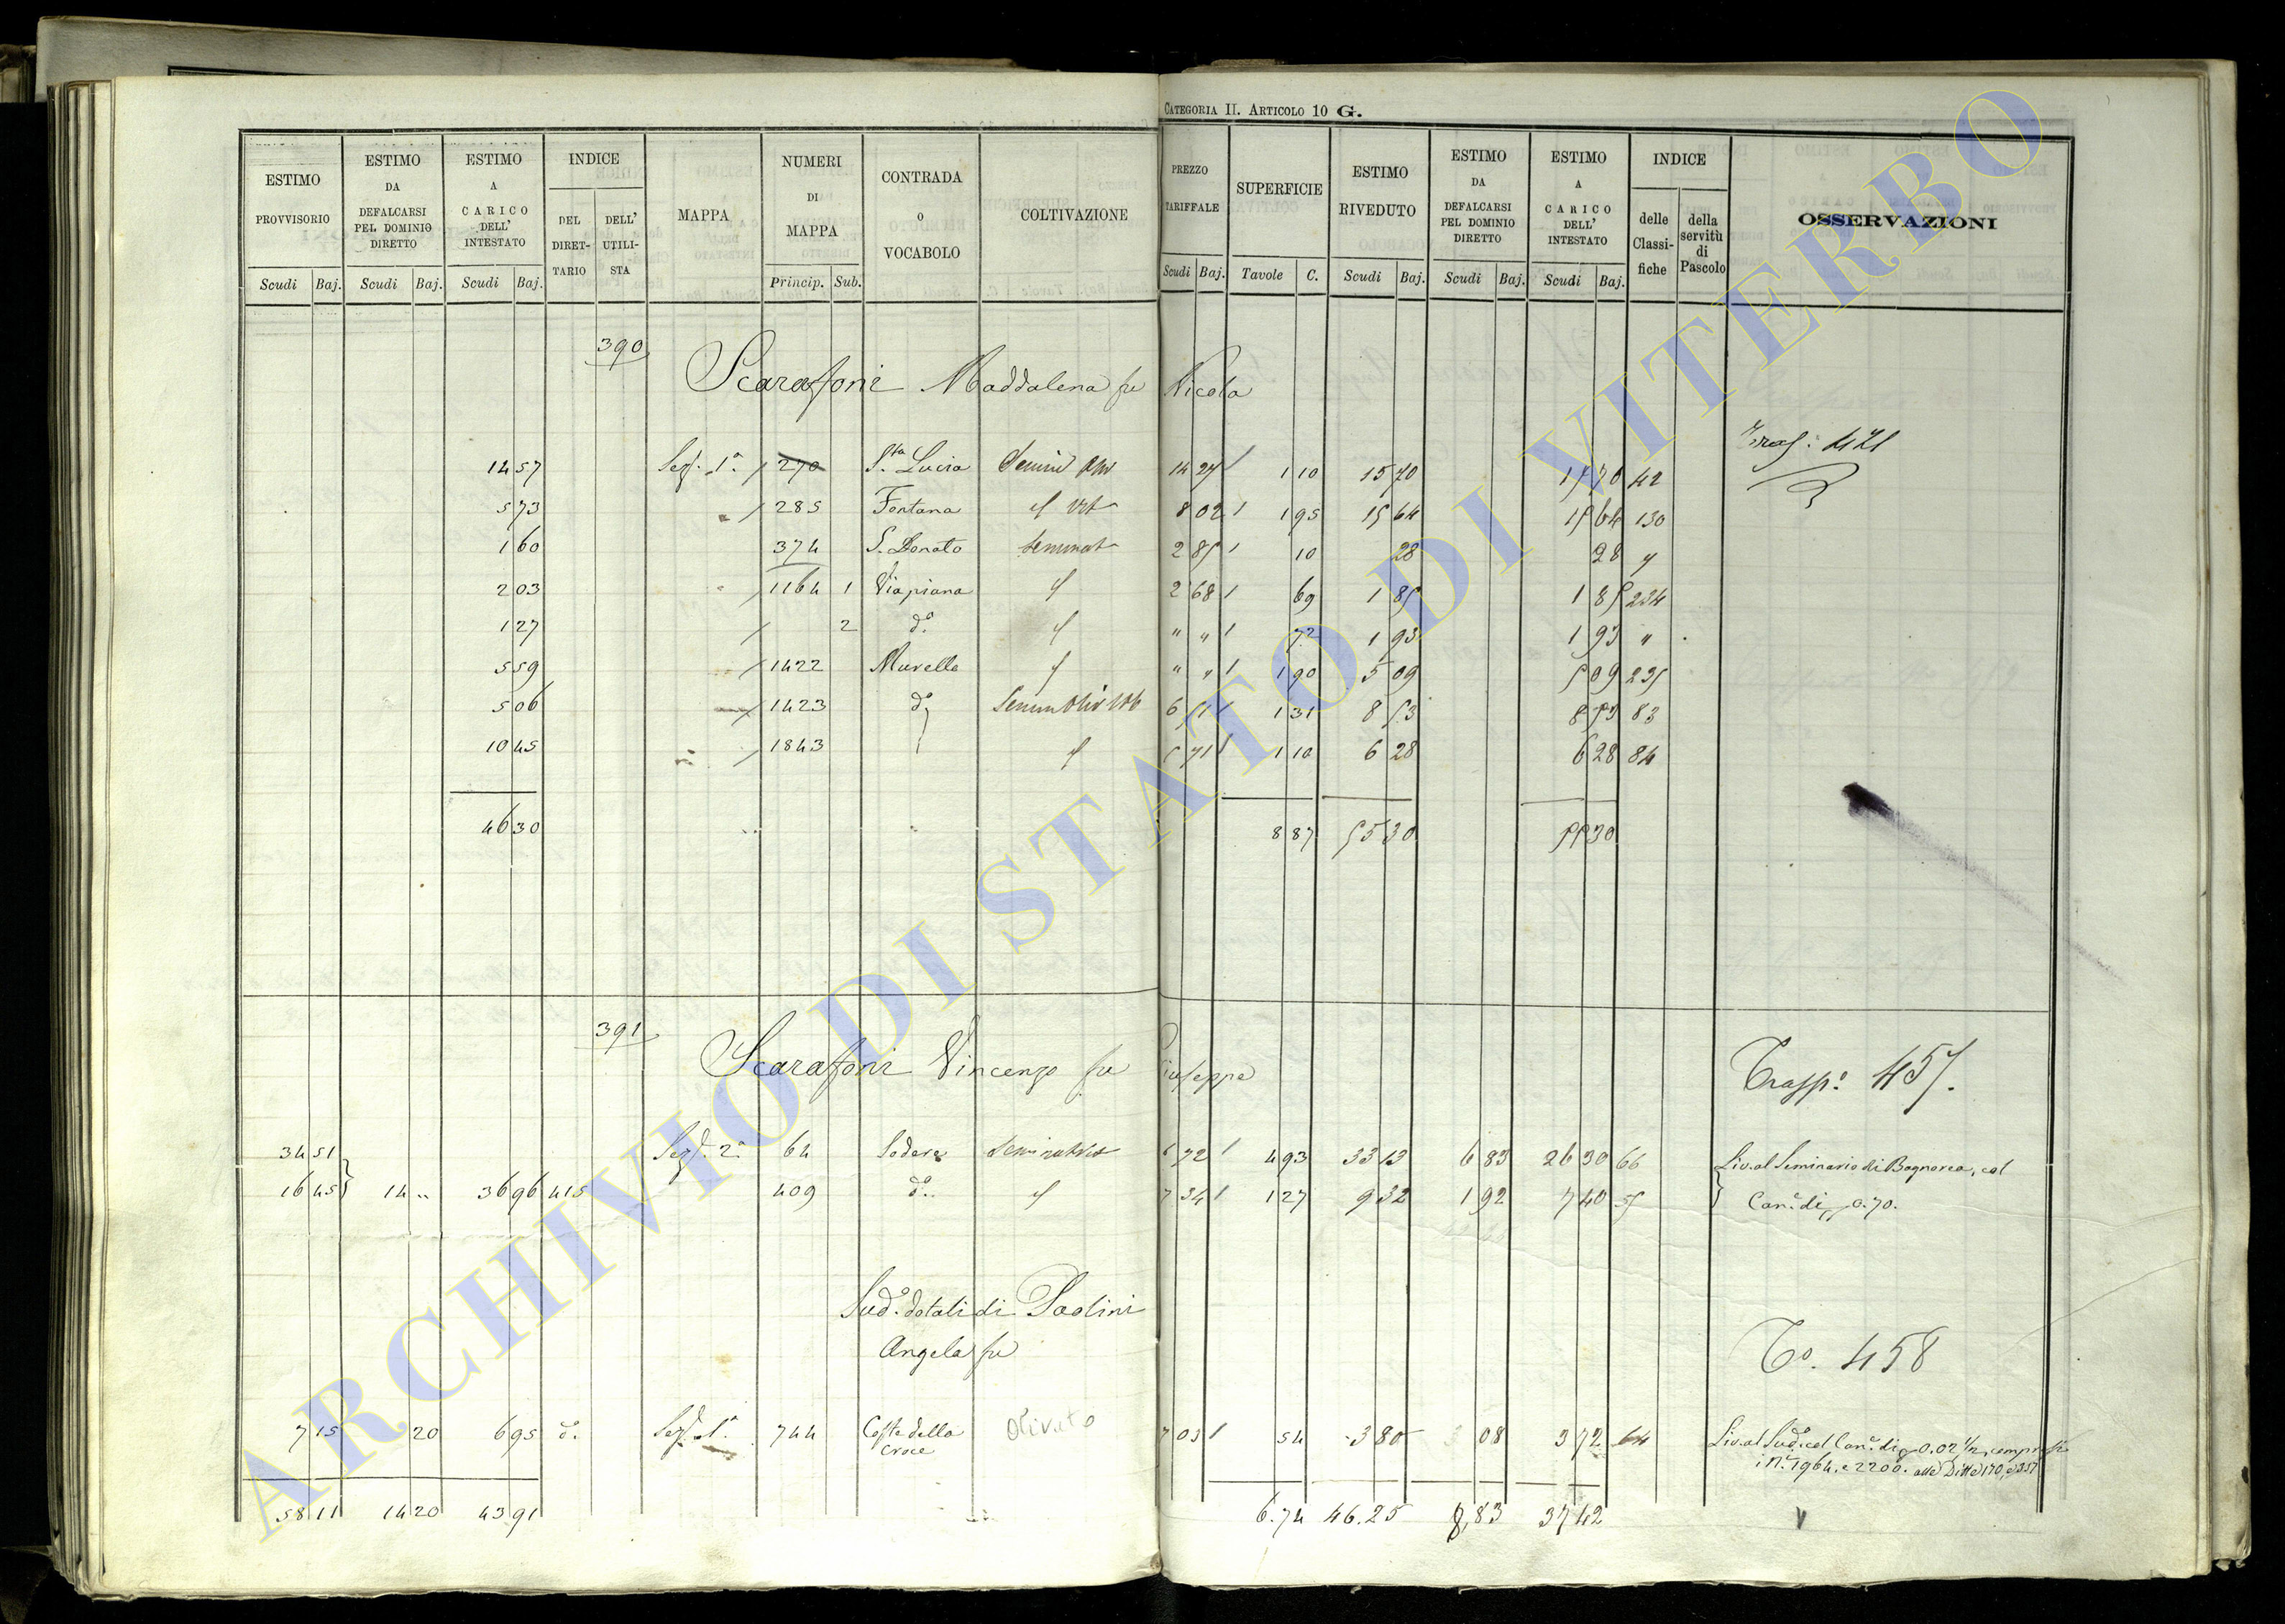 CATEGORIA II. ARTICOLO 10 G.
ESTIMO PROVVISORIO Scudi Baj.
ESTIMO DA DEFALCARSI PEL DOMINIO DIRETTO Scudi Baj.
ESTIMO A CARICO DELL' INTESTATO Scudi Baj.
INDICE DEL DIRETTARIO DELL' UTILISTA
MAPPA
NUMERI DI MAPPA Princip. Sub.
CONTRADA O VOCABOLO
COLTIVAZIONE
PREZZO TARIFFALE Scudi Baj.
SUPERFICIE Tavole C.
ESTIMO RIVEDUTO Scudi Baj.
ESTIMO DA DEFALCARSI PEL DOMINIO DIRETTO Scudi Baj.
ESTIMO A CARICO DELL' INTESTATO Scudi Baj.
INDICE delle Classifiche della servitù di Pascolo
OSSERVAZIONI
390
Scarafoni Maddalena fu Nicola
Trasp: 421
14 57 Sez. 1a 270 Sta Lucia 14 27 1 10 15 70 15 70 42
5 73 285 Fontana 8 02 1 95 15 64 15 64 130
1 60 374 S. Donato Seminat 2 85 10 28 28 4
2 03 1164 1 Viapiana 2 68 69 1 85 1 85 234
1 27 2 do " " 72 1 93 1 93 "
5 59 1422 Murelle " " 1 90 5 09 5 09 235
5 06 1423 do 6 51 1 31 8 53 8 53 83
10 45 1843 5 71 1 10 6 28 6 28 84
46 30 8 87 55 30 55 30
391
Scarafoni Vincenzo fu Giuseppe
Trasp: 457.
34 51 Sez. 2a 64 Sodere 6 72 4 93 33 13 6 83 26 30 66 Liv. al Seminario di Bagnorea, col
16 45 14 .. 36 96 415 409 do. 7 34 1 27 9 32 1 92 7 40 55 Can. di 0.70.
Sudo. dotali di Paolini
Angela fu
To. 458
7 15 20 6 95 do. Sez. 1a 744 Coste della Croce Olivato 7 03 54 3 80 08 3 72 64 Liv. al Sudo. col Can. di 0.02 1/2 compresi
i Ni. 1964. e 2200. alle Ditte 170, e 357
58 11 14 20 43 91 6.74 46.25 8,83 37 42
ARCHIVIO DI STATO DI VITERBO